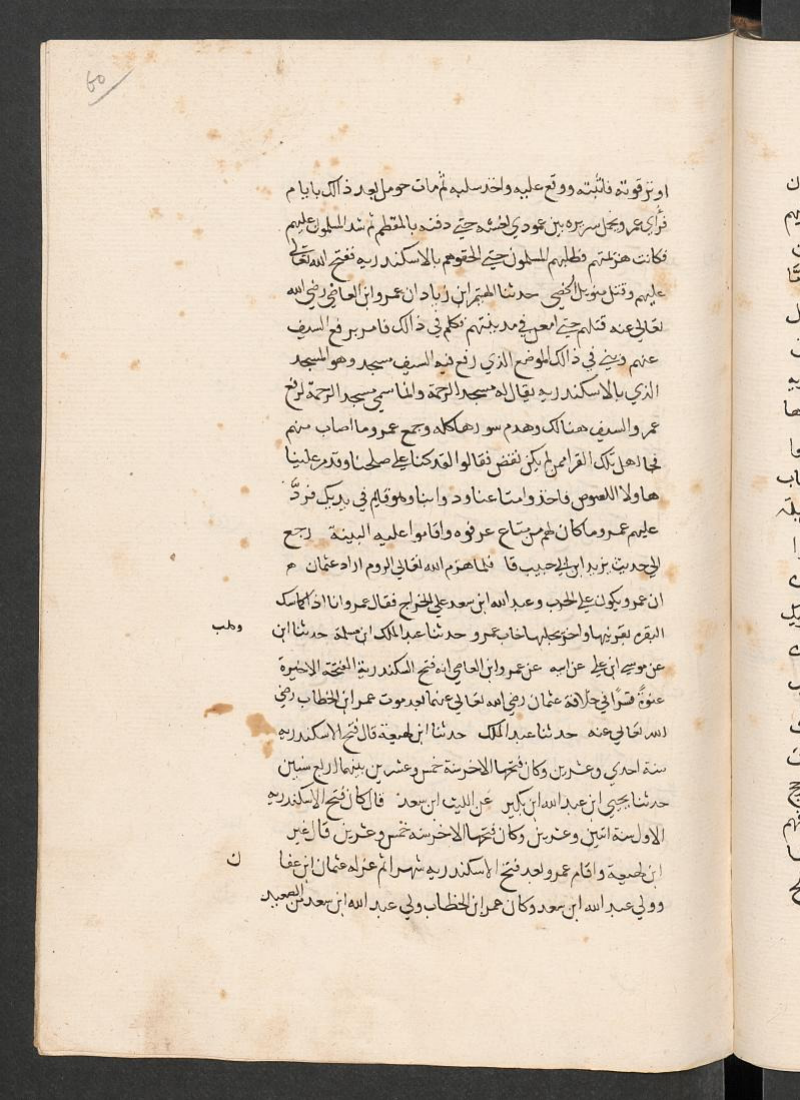 60
او ترقوته فاثبته ووقع عليه واخذ سلبه ثم مات حومل بعد ذالك بايام
فرأي عمرو يحمل سريره بين عمودي نعشه حتي دفنه بالمقطم ثم شد المسلمون عليهم
فكانت هزيمتهم فطلبهم المسلمون حتي الحقوهم بالاسكندريه ففتح الله تعالي
عليهم وقتل منويل الخصي حدثنا الهيثم ابن زياد ان عمرو ابن العاصي رضي الله
تعالي عنه قتلهم حتي امعن في مدينتهم فكلم في ذالك فامر برفع السيف
عنهم وبني في ذالك الموضع الذي رفع فيه السيف مسجد وهو المسجد
الذي بالاسكندريه يقال له مسجد الرحمة وانما سمي مسجد الرحمة لرفع
عمرو السيف هنالك وهدم سورها كله وجمع عمرو ما اصاب منهم
فجا اهل تلك القرا ممن لم يكن نقض فقالوا قد كنا علي صلحنا وقد مر علينا
هاولا اللصوص فاخذوا متاعنا ودوابنا وهو قايم في يديك فردّ
عليهم عمرو ما كان لهم من متاع عرفوه واقاموا عليه البينة رجع
الي حديث يزيد ابن ابي حبيب قا فلما هزم الله تعالي الروم اراد عثمان
ان عمرو يكون علي الحرب وعبد الله ابن سعد علي الخراج فقال عمرو انا اذا كماسك
البقره بقرونيها واخر يحلبها فاب عمرو حدثنا عبد الملك ابن مسلمة حدثنا ابن
وهب
عن موسي ابن علي عن ابيه عن عمرو ابن العاصي انه فتح السكندرية الفتحة الاخيرة
عنوةً قسرًا في خلافة عثمان رضي الله تعالي عنهما بعد موت عمر ابن الخطاب رضي
الله تعالي عنه حدثنا عبد الملك حدثنا ابن لهيعة قال فتح الاسكندريه
سنة احدي وعشرين وكان فتحها الاخر سنة خمس وعشرين بينهما اربع سنين
حدثنا يحيي ابن عبد الله ابن بكير عن الليث ابن سعد قال كان فتح الاسكندريه
الاول سنة اثنين وعشرين وكان فتحها الاخر سنه خمس وعشرين قال غير
ابن لهيعة واقام عمرو بعد فتح الاسكندريه شهرا ثم عزله عثمان ابن عفا
ن
وولي عبد الله ابن سعد وكان عمر ابن الخطاب ولي عبد الله ابن سعد من الصعيد